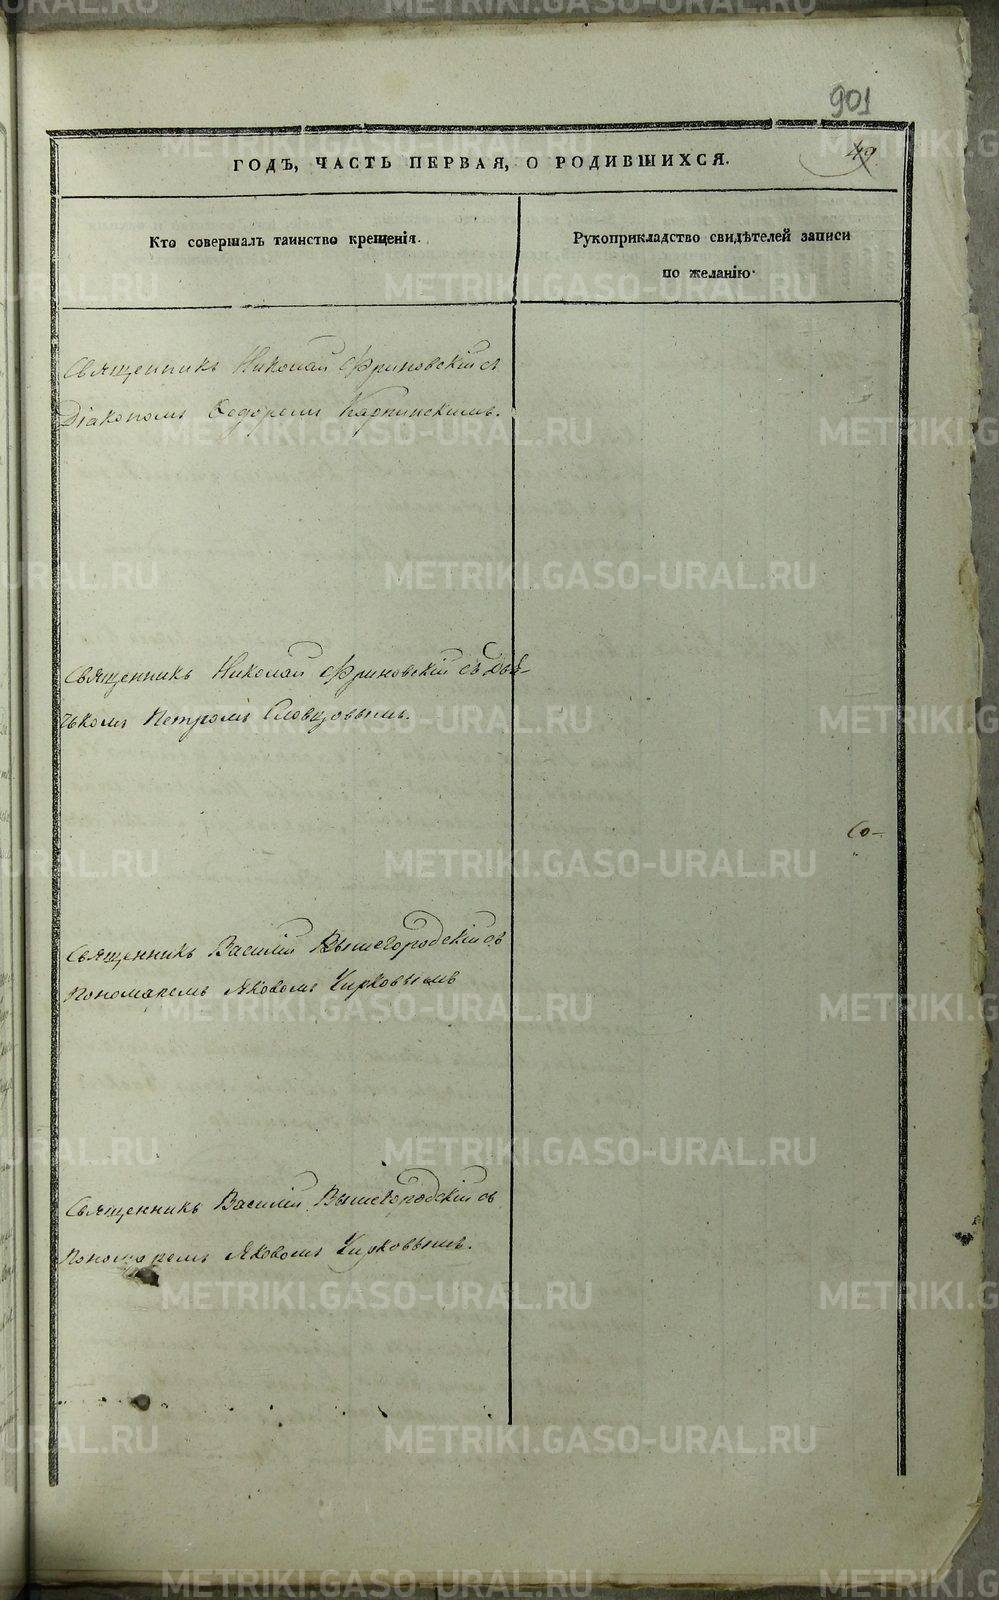 901
49
ГОДЪ, ЧАСТЬ ПЕРВАЯ, О РОДИВШИХСЯ.
Кто совершалъ таинство крещенія.
Рукоприкладство свидѣтелей записи
по желанію.
Священникъ Николай Фриновскій съ
Діакономъ Ѳедоромъ Карпинскимъ.
Священникъ Николай Фриновскій съ Дья-
чькомъ Петромъ Словцовымъ.
Со-
Священникъ Василій Вышегородскій съ
Пономаремъ Яковомъ Чирковымъ
Священникъ Василій Вышегородскій съ
Пономаремъ Яковомъ Чирковымъ.
METRIKI.GASO-URAL.RU